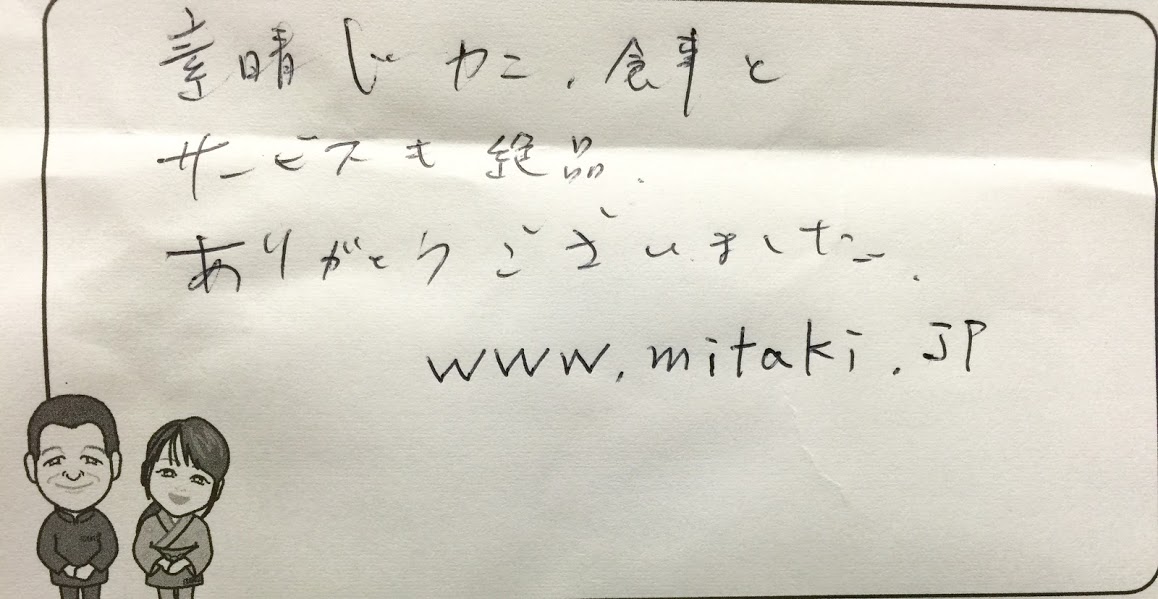 素晴じカニ、食事と
サービスも絶品.
ありがとうございました.
www.mitaki.JP